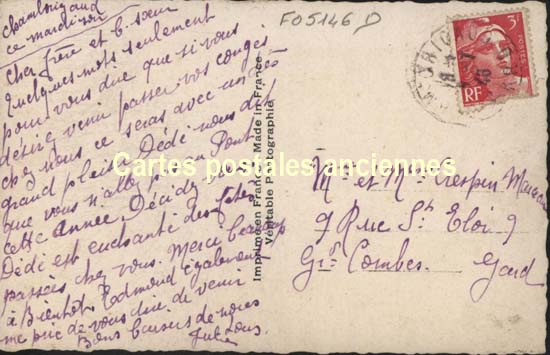 Chamborigaud
ce mardi soir
Cher frère et b. sœur
Quelques mots seulement
pour vous dire que si vous
désire venir passer vos congés
chez nous ce seras avec un
grand plaisir Dédé nous dit
que vous n'alle pas au Pont
cette Année Décidez vous
Dédé est enchanté des fêtes
passées chez vous. Merci beaucoup
à Bientôt Edmond également
me prie de vous dire de venir
Bons baisers de nous
F05146 D
3F
POSTES
RF
Imprimé en France - Made in France
Véritable Photographie
Cartes postales anciennes
Mr et Mme Crespin
9 Rue St Eloi 9
Gd Combes. Gard